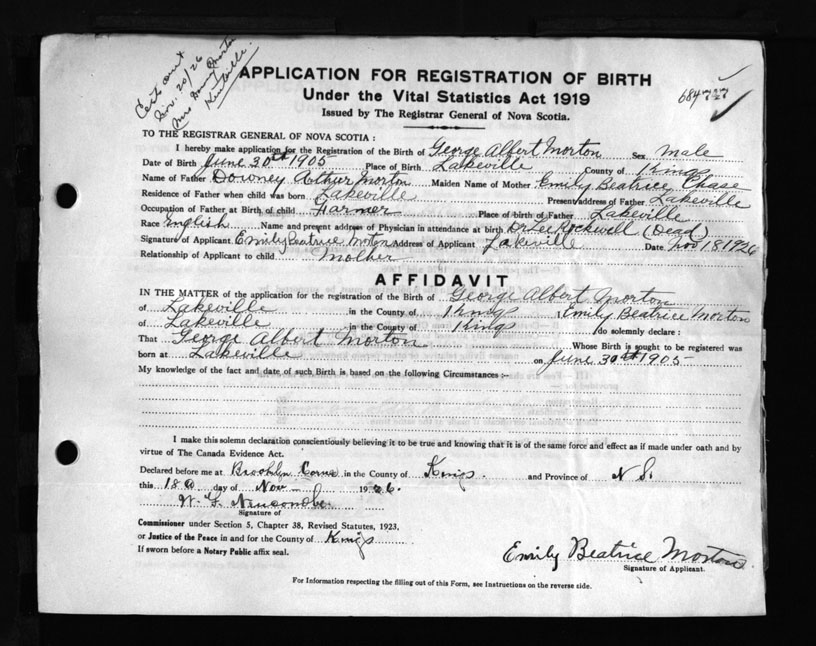 Cert sent
Nov. 20/26
Mrs Downey Morton
Kentville.
APPLICATION FOR REGISTRATION OF BIRTH
Under the Vital Statistics Act 1919
Issued by The Registrar General of Nova Scotia.
684747
TO THE REGISTRAR GENERAL OF NOVA SCOTIA :
I hereby make application for the Registration of the Birth of George Albert Morton Sex Male
Date of Birth June 30th 1905 Place of Birth Lakeville County of Kings
Name of Father Downey Arthur Morton Maiden Name of Mother Emily Beatrice Chase
Residence of Father when child was born Lakeville Present address of Father Lakeville
Occupation of Father at Birth of child Farmer Place of birth of Father Lakeville
Race English Name and present address of Physician in attendance at birth Dr Lee Rockwell (Dead)
Signature of Applicant Emily Beatrice Morton Address of Applicant Lakeville Date Nov 18 1926
Relationship of Applicant to child Mother
AFFIDAVIT
IN THE MATTER of the application for the registration of the Birth of George Albert Morton
of Lakeville in the County of Kings I Emily Beatrice Morton
of Lakeville in the County of Kings do solemnly declare :
That George Albert Morton Whose Birth is sought to be registered was
born at Lakeville on June 30th 1905
My knowledge of the fact and date of such Birth is based on the following Circumstances :-
I make this solemn declaration conscientiously believing it to be true and knowing that it is of the same force and effect as if made under oath and by
virtue of The Canada Evidence Act.
Declared before me at Brooklyn Corner in the County of Kings and Province of N S.
this 18th day of Nov 1926.
W. F. Newcombe
Signature of
Commissioner under Section 5, Chapter 38, Revised Statutes, 1923.
or Justice of the Peace in and for the County of Kings
If sworn before a Notary Public affix seal.
Emily Beatrice Morton
Signature of Applicant.
For Information respecting the filling out of this Form, see Instructions on the reverse side.